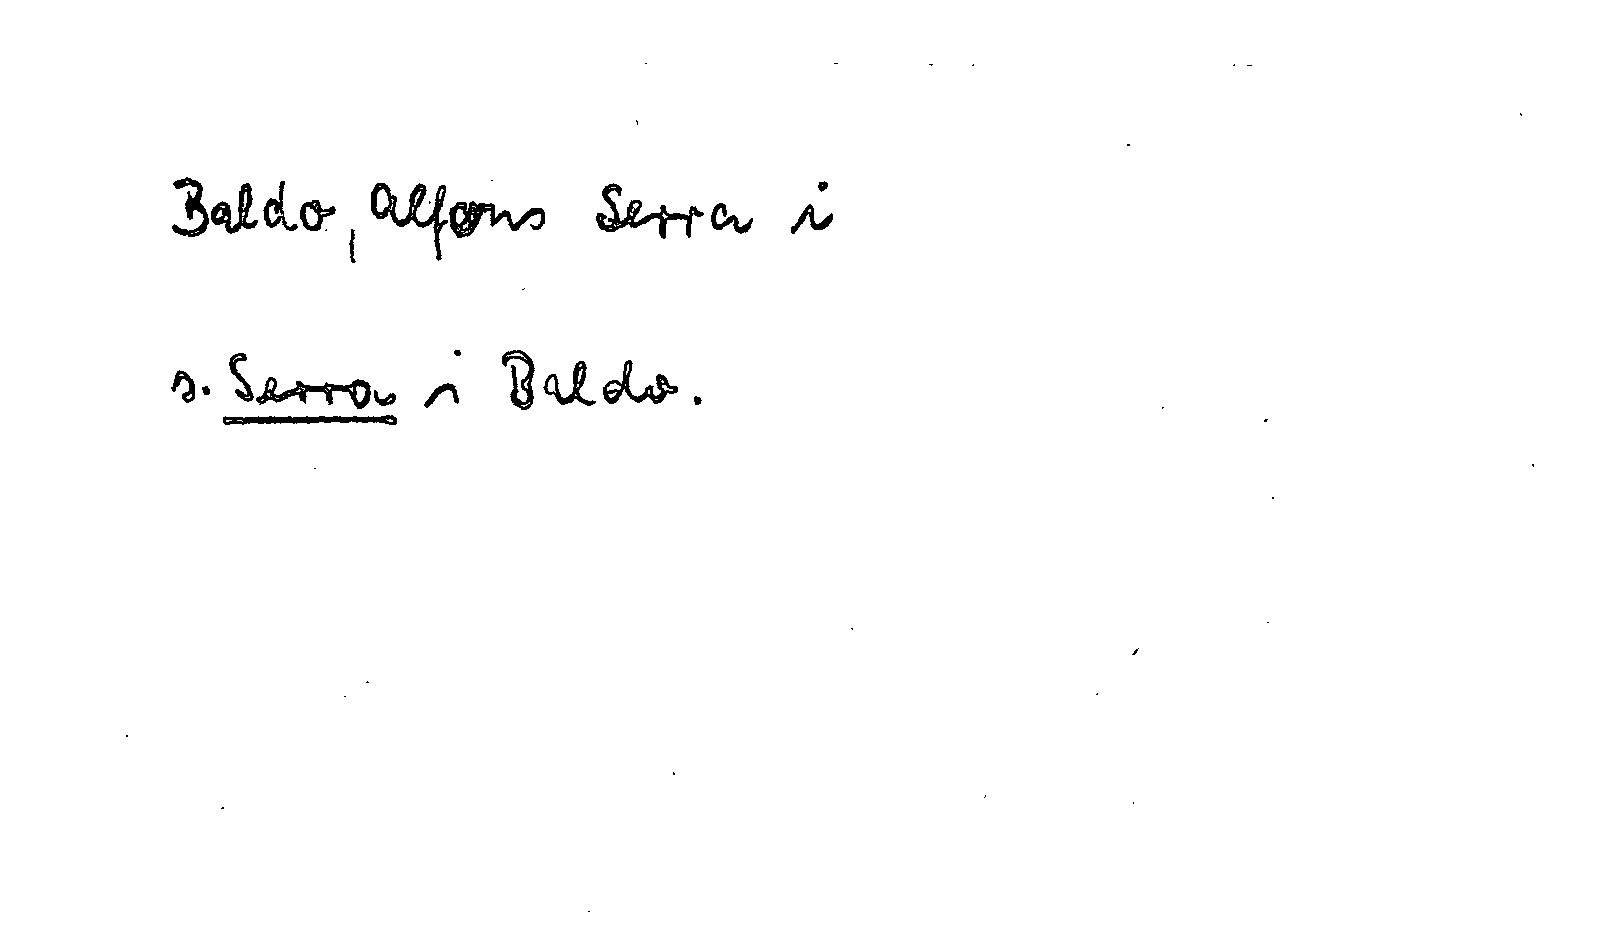 Baldo, Alfons Serra i
s. Serra i Baldo.